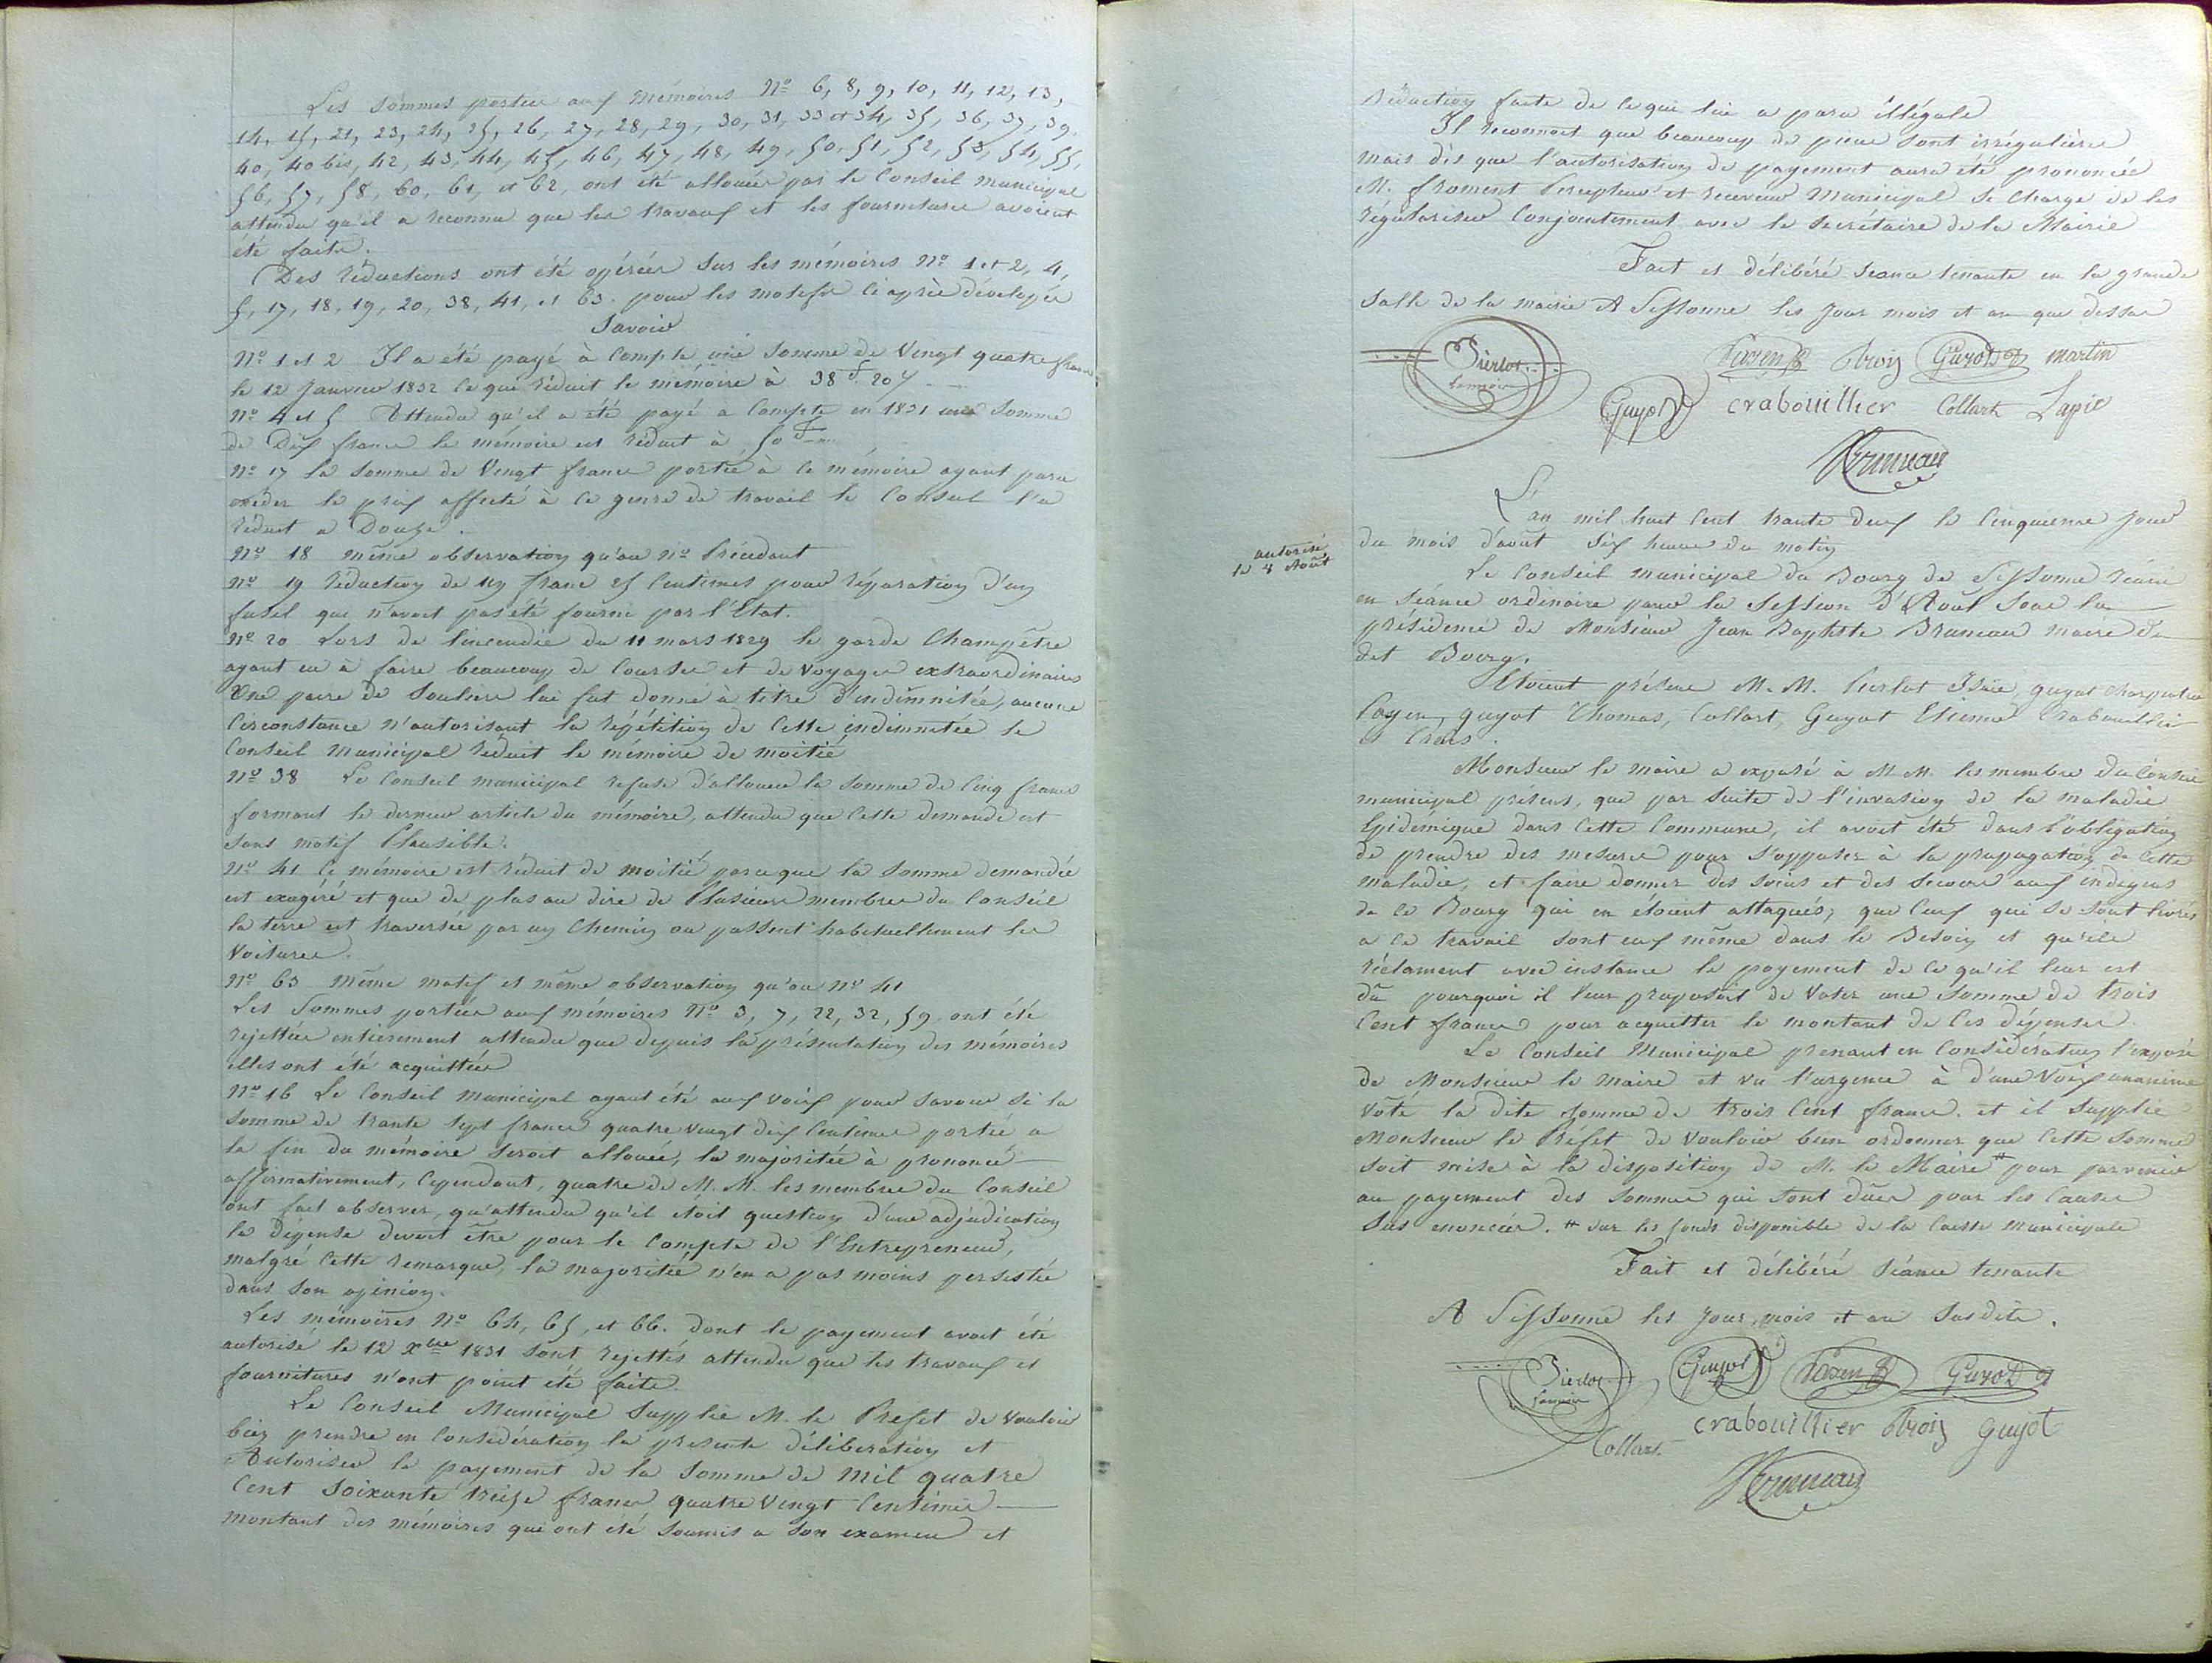 Les sommes portées aux mémoires Nº 6, 8, 9, 10, 11, 12, 13,
14, 15, 21, 23, 24, 25, 26, 27, 28, 29, 30, 31, 33 et 34, 35, 36, 37, 39,
40, 40 bis, 42, 43, 44, 45, 46, 47, 48, 49, 50, 51, 52, 53, 54, 55,
56, 57, 58, 60, 61, et 62, ont été allouées par le Conseil municipal
attendu qu'il a reconnu que les travaux et les fournitures avoient
été faits.
Des réductions ont été opérées sur les mémoires Nº 1 et 2, 4,
5, 17, 18, 19, 20, 38, 41, et 63. pour les motifs ci après dévelopés
Savoir
Nº 1 et 2 Il a été payé à compte une somme de Vingt quatre francs
le 12 Janvier 1832 ce qui réduit le mémoire à 38 f. 20
Nº 4 et 5 Attendu qu'il a été payé a compte en 1831 une somme
de Dix francs le mémoire est réduit à 50 f
Nº 17 la somme de Vingt francs portée à ce mémoire ayant paru
exéder le prix affecté à ce genre de travail le Conseil l'a
réduit a Douze.
Nº 18 même observation qu'au nº Précédant
nº 19 réduction de un franc 25 Centimes pour réparation d'un
fusil qui n'avoit pas été fourni par l'Etat.
Nº 20 Lors de l'incendie du 11 mars 1829 le garde Champêtre
ayant eu à faire beaucoup de Courses et de Voyages extraordinaires
Une paire de Souliers lui fut donné à titre d'indimnitée, aucune
Circonstance n'autorisant la répétition de Cette indimnitée le
Conseil municipal réduit le mémoire de moitié
Nº 38 Le Conseil municipal refuse d'allouer la somme de Cinq francs
formant le dernier article du mémoire, attendu que Cette demande est
sans motif Plausible.
Nº 41 Ce mémoire est réduit de moitié parceque la Somme demandée
est exagéré et que de plus au dire de Plusieurs membres du Conseil
la terre est traversée par un Chemin ou passent habituellement les
Voitures.
Nº 63 Même motif et même observation qu'au Nº 41
Les Sommes portées aux mémoires Nº 3, 7, 22, 32, 59, ont été
rejettées entierement attendu que depuis la présentation des mémoires
elles ont été acquittées
Nº 16 Le Conseil municipal ayant été aux voix pour savoir si la
somme de trante sept francs quatre vingt dix Centimes portée a
la fin du mémoire seroit allouée, la majoritée à prononcé
affirmativement, Cependant, quatre de M. M. les membres du Conseil
ont fait observer, qu'attendu qu'il étoit question d'une adjudication
la dépense devoit être pour le Compte de l'Entrepreneur,
malgré Cette remarque, la majoritée n'en a pas moins persistée
dans son opinion.
Les mémoires Nº 64, 65, et 66. dont le payement avoit été
autorisé le 12 Xbre 1831 sont rejettés attendu que les travaux et
fournitures n'ont point été faits.
Le Conseil Municipal supplie M. le Préfet de vouloir
bien prendre en Considération la présente délibération et
Autoriser le payement de la somme de mil quatre
Cent soixante treize francs quatre Vingt Centimes
montant des mémoires qui ont été soumis a son examen et
Réduction faite de ce qui lui a paru illégale
Il reconnoit que beaucoup de pieces sont irrégulières
mais dès que l'autorisation de payement aura été prononcée
M. froment Percepteur et receveur Municipal se charge de les
régulariser Conjointement avec le secrétaire de la Mairie
Fait et délibéré séance tenante en la grande
Salle de la mairie A Sissonne les jour mois et an que dessus
Pierlot Payen Guyot martin
Guyot crabouillier Collart Lapie
Bruneau
L'an mil huit Cent trante deux le Cinquieme jour
du mois d'août six heures du matin
autorisé
le 8 Août
Le Conseil municipal du Bourg de Sissonne réuni
en séance ordinaire pour la Session d'Août sous la
présidence de Monsieur Jean Baptiste Bruneau maire du
dit Bourg.
Etoient présens M. M. Pierlot Isaie, guyot Charpentier
Payen, guyot Thomas, Collart, Guyot Etienne Crabouillier
et Crois.
Monsieur le maire a exposé à M M. les membres du Conseil
municipal présens, que par suite de l'invasion de la maladie
Epidémique dans Cette Commune, il avoit été dans l'obligation
de prendre des mesures pour s'opposer à la propagation de Cette
maladie, et faire donner des soins et des secours aux indigens
de Ce Bourg qui en étoient attaqués, que Ceux qui se sont livrés
a Ce travail sont eux même dans le Besoin et qu'ils
réclament avec instance le payement de ce qu'il leur est
dû pourquoi il leur proposoit de Voter une somme de trois
Cent francs pour acquitter le montant de Ces dépenses.
Le Conseil Municipal prenant en Considération l'exposé
de Monsieur le maire et vu l'urgence à d'une Voix unanime
Voté la dite somme de trois Cent francs. et il supplie
Monsieur le Préfet de Vouloir bien ordonner que Cette somme
soit mise à la disposition de M. le Maire # pour parvenir
au payement des sommes qui sont dûes pour les Causes
sus enoncées. # sur les fonds disponible de la Caisse municipale
Fait et délibéré Séance tenante
A Sissonne les jour, mois et an susdits.
Pierlot Guyot Payen Guyot
crabouillier guyot
Collart
Bruneau